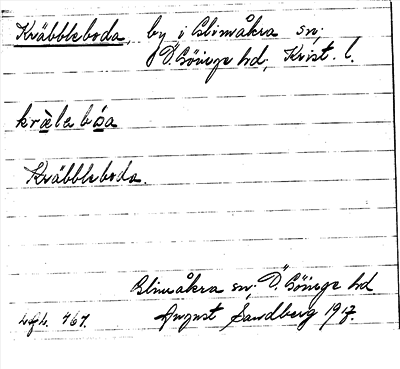 Kräbbleboda, by i Glimåkra sn;
Ö. Göinge hd, Krist. l.
kràlebóa
Kräbbleboda.
Glimåkra sn; Ö. Göinge hd
August Sandberg 1917.